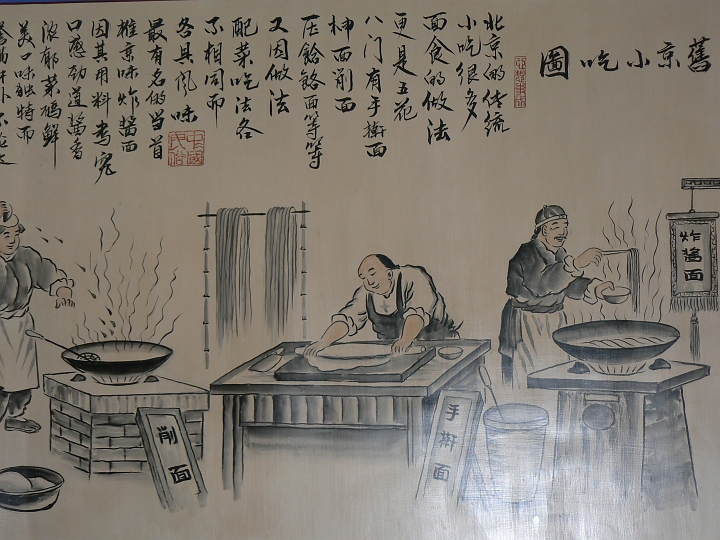 舊京小吃圖
北京的传统
小吃很多
面食的做法
更是五花
八门有手衎面
抻面削面
压餄餎面等等
又因做法
配菜吃法各
不相同而
各具风味
最有名的当首
推京味炸醬面
因其用料考究
口感劲道醬香
浓郁菜码鲜
美口味独特而
中國民俗
炸醬面
手衎面
削面